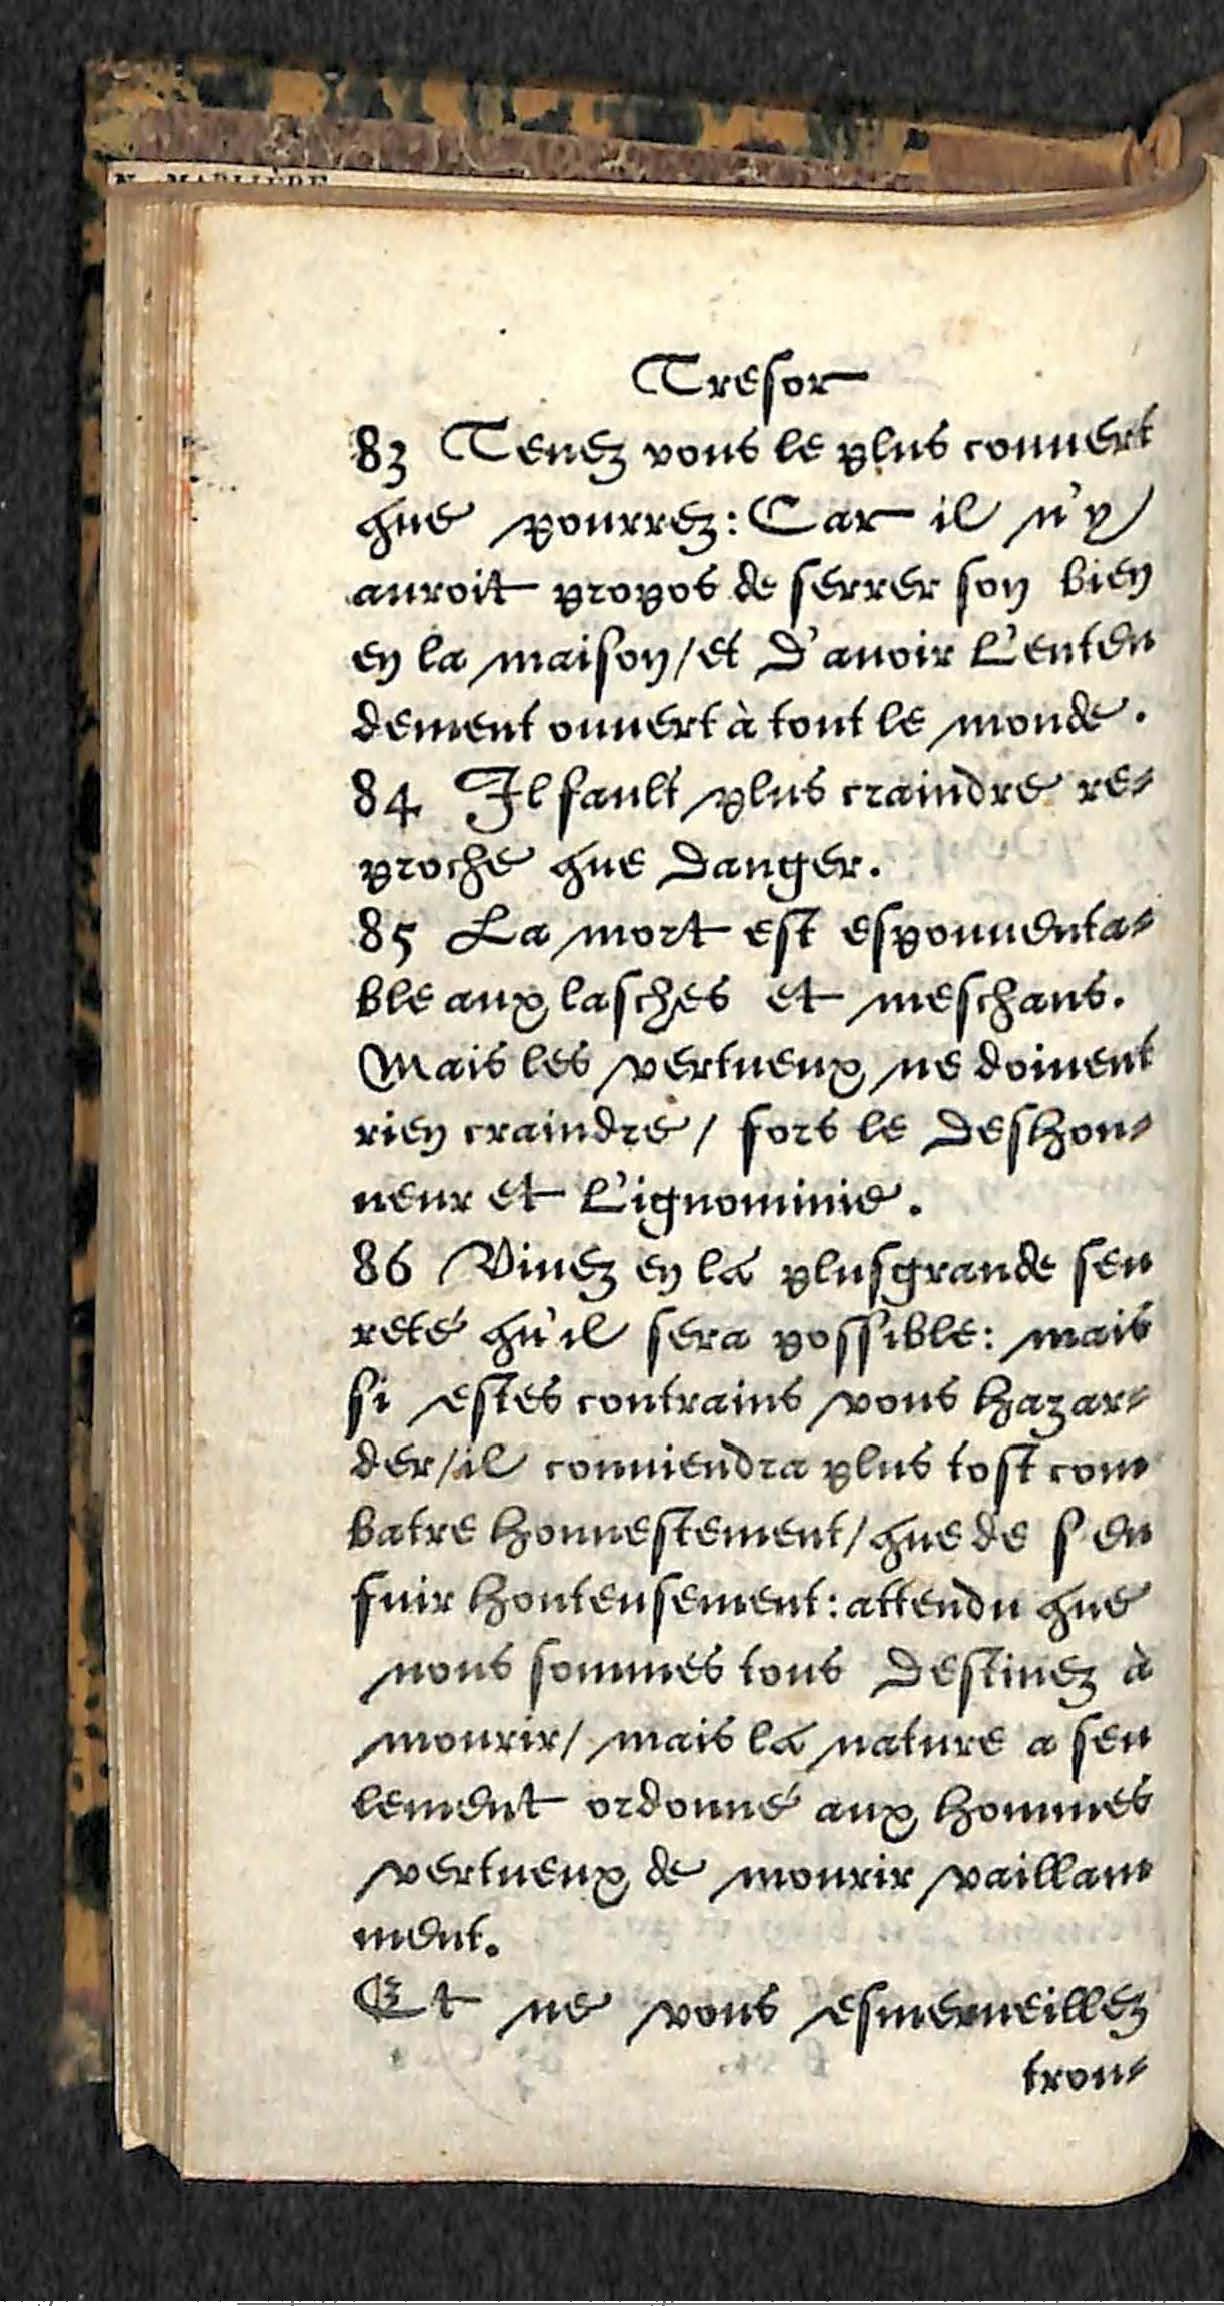 Tresor
83 Tenez vous le plus couuert
que pourrez: Car il n'y
auroit propos de serrer son bien
en la maison/et d'auoir l'enten
dement ouuert à tout le monde.
84 Il fault plus craindre re-
proche que danger.
85 La mort est espouuenta-
ble aux lasches et meschans.
Mais les vertueux ne doiuent
rien craindre/ fors le deshon-
neur et l'ignominie.
86 Viuez en la plusgrande seu
reté qu'il sera possible: mais
si estes contrains vous hazar-
der/il conuiendra plus tost com
batre honnestement/que de s'en
fuir honteusement: attendu que
nous sommes tous destinez à
mourir/ mais la nature a seu
lement ordonné aux hommes
vertueux de mourir vaillam
ment.
Et ne vous esmerueillez
trou-